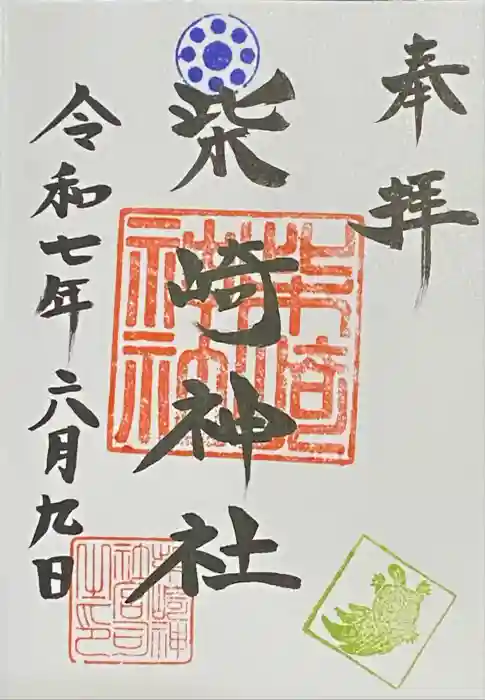 奉拝
柴崎神社
令和七年六月九日
柴崎神社
柴崎神社宮司之印